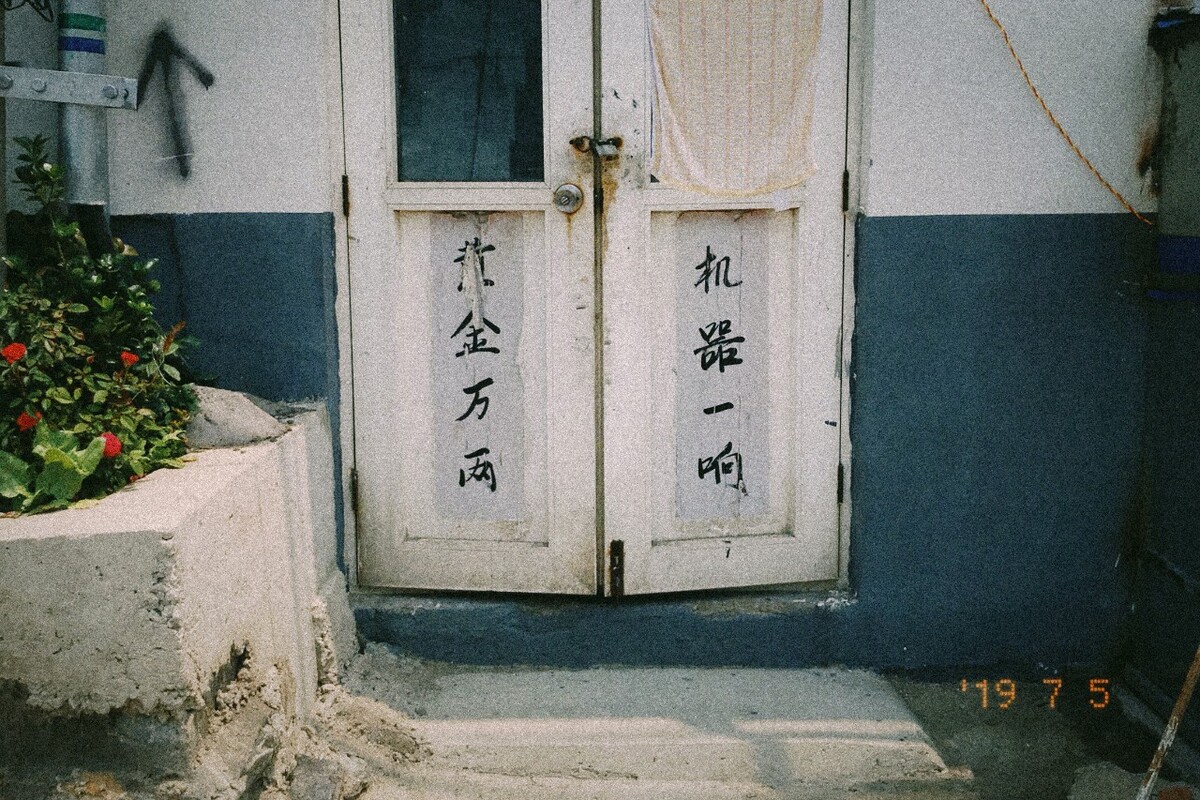 机器一响
黄金万两
'19 7 5